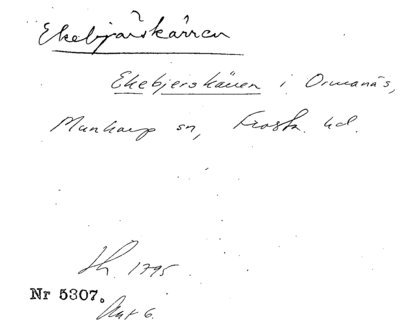 Ekebjärskärren
Ekebjerskärren i Ormanäs,
Munkarp sn, Frosta hd.
1795
Nr 5307.
Akt 6.